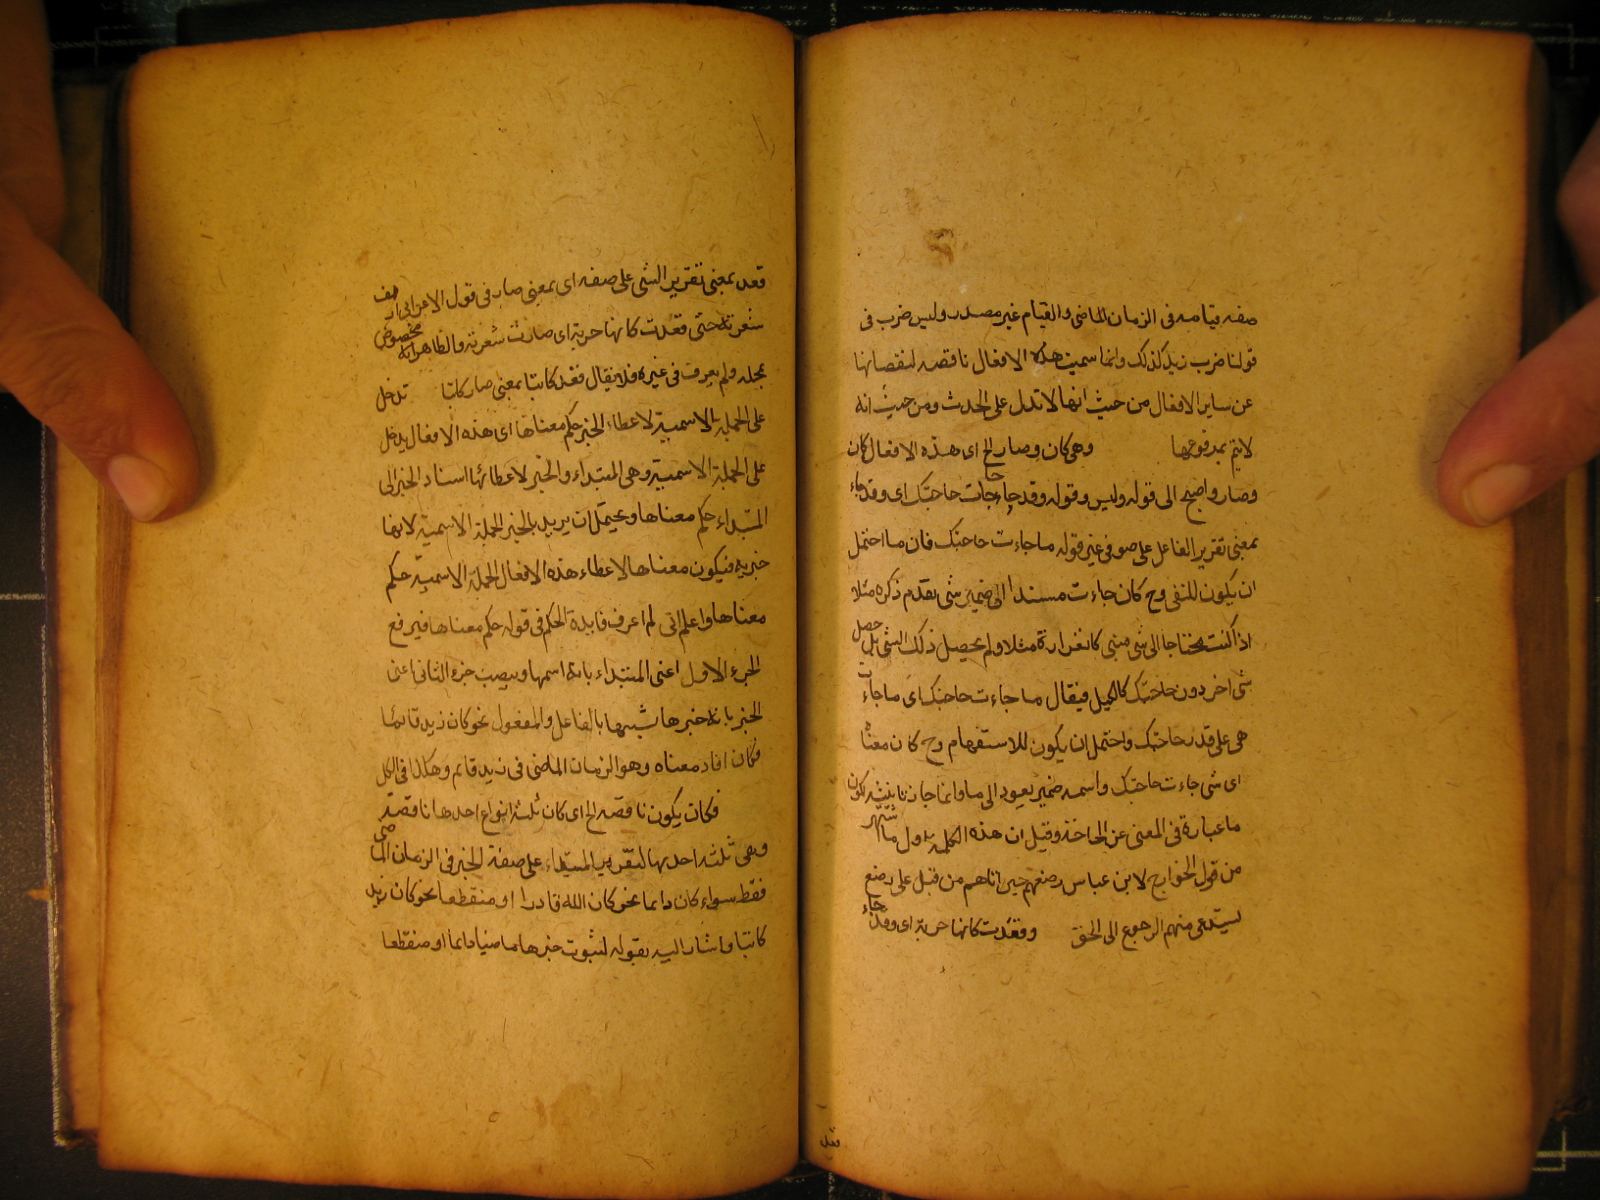 صفه قيامه فى الزمان الماضى والقيام غير مصدر وليس ضرب فى
قولنا ضرب زيد كذلك وانما سميت هذه الافعال ناقصه لنقصانها
عن ساير الافعال من حيث انها لا تدل على الحدث ومن حيث انه
لا يتم بمرفوعها وهى كان وصار الخ اى هذه الافعال كان
وصار واصبح الى قوله وليس وقوله وقد جاء جاءت حاجتك اى وقد جاء
بمعنى تقرير الفاعل على صفة فى غير قوله ما جاءت حاجتك فان ما احتمل
ان يكون للنفى وح كان جاءت مسندا الى ضمير شى تقدم ذكره مثلا
اذا كنت محتاجا الى شى مبنى كالغرارة مثلا ولم يحصل ذلك الشى بل حصل
شى اخر دون حاجتك كالكيل فيقال ما جاءت حاجتك اى ما جاءت
هى على قدر حاجتك واحتمل ان يكون للاستفهام وح كان معناه
اى شى جاءت حاجتك واسمه ضمير يعود الى ما وانما جاز تانيثه لكون
ما عبارة فى المعنى عن الحاجة وقيل ان هذه الكلمه اول ما اشتهر
من قول الخوارج لابن عباس رضعهم حين اتاهم من قبل على رضع
يستدعى منهم الرجوع الى الحق وقعدت كانها حربة اى وقد جاء
قعد
قعد بمعنى تقرير الشى على صفه اى بمعنى صار فى قول الاعرابى ارهف
شفرته حتى قعدت كانها حربة اى صارت شفرته والظاهر انه مخصوص
بمحله ولم يعرف فى غيره فلا يقال قعد كاتبا بمعنى صار كاتبا تدخل
على الجملة الاسمية لاعطاء الخبر حكم معناها اى هذه الافعال يدخل
على الجملة الاسمية وهى المبتداء والخبر لاعطائها اسناد الخبر الى
المبتداء حكم معناها ويحتمل ان يريد بالخبر الجملة الاسمية لانها
خبريه فيكون معناها لاعطاء هذه الافعال الجملة الاسمية حكم
معناها واعلم انى لم اعرف فايدة الحكم فى قوله حكم معناها فيرفع
الجزء الاول اعنى المبتداء بانه اسمها وينصب جزء الثانى اعنى
الخبر بانه خبرها شبيها بالفاعل والمفعول نحو كان زيد قائما
فكان افاد معناه وهو الزمان الماضى فى زيد قائم وهكذا فى الكل
فكان يكون ناقصه الخ اى كان ثلثة انواع احدها ناقصة
وهى ثلثه احديها لتقرير المبتداء على صفة الخبر فى الزمان الماضى
فقط سواء كان دائما نحو كان الله قادرا او منقطعا نحو كان زيد
كاتبا واشار اليه بقوله لثبوت خبرها ماضيا دائما او منقطعا